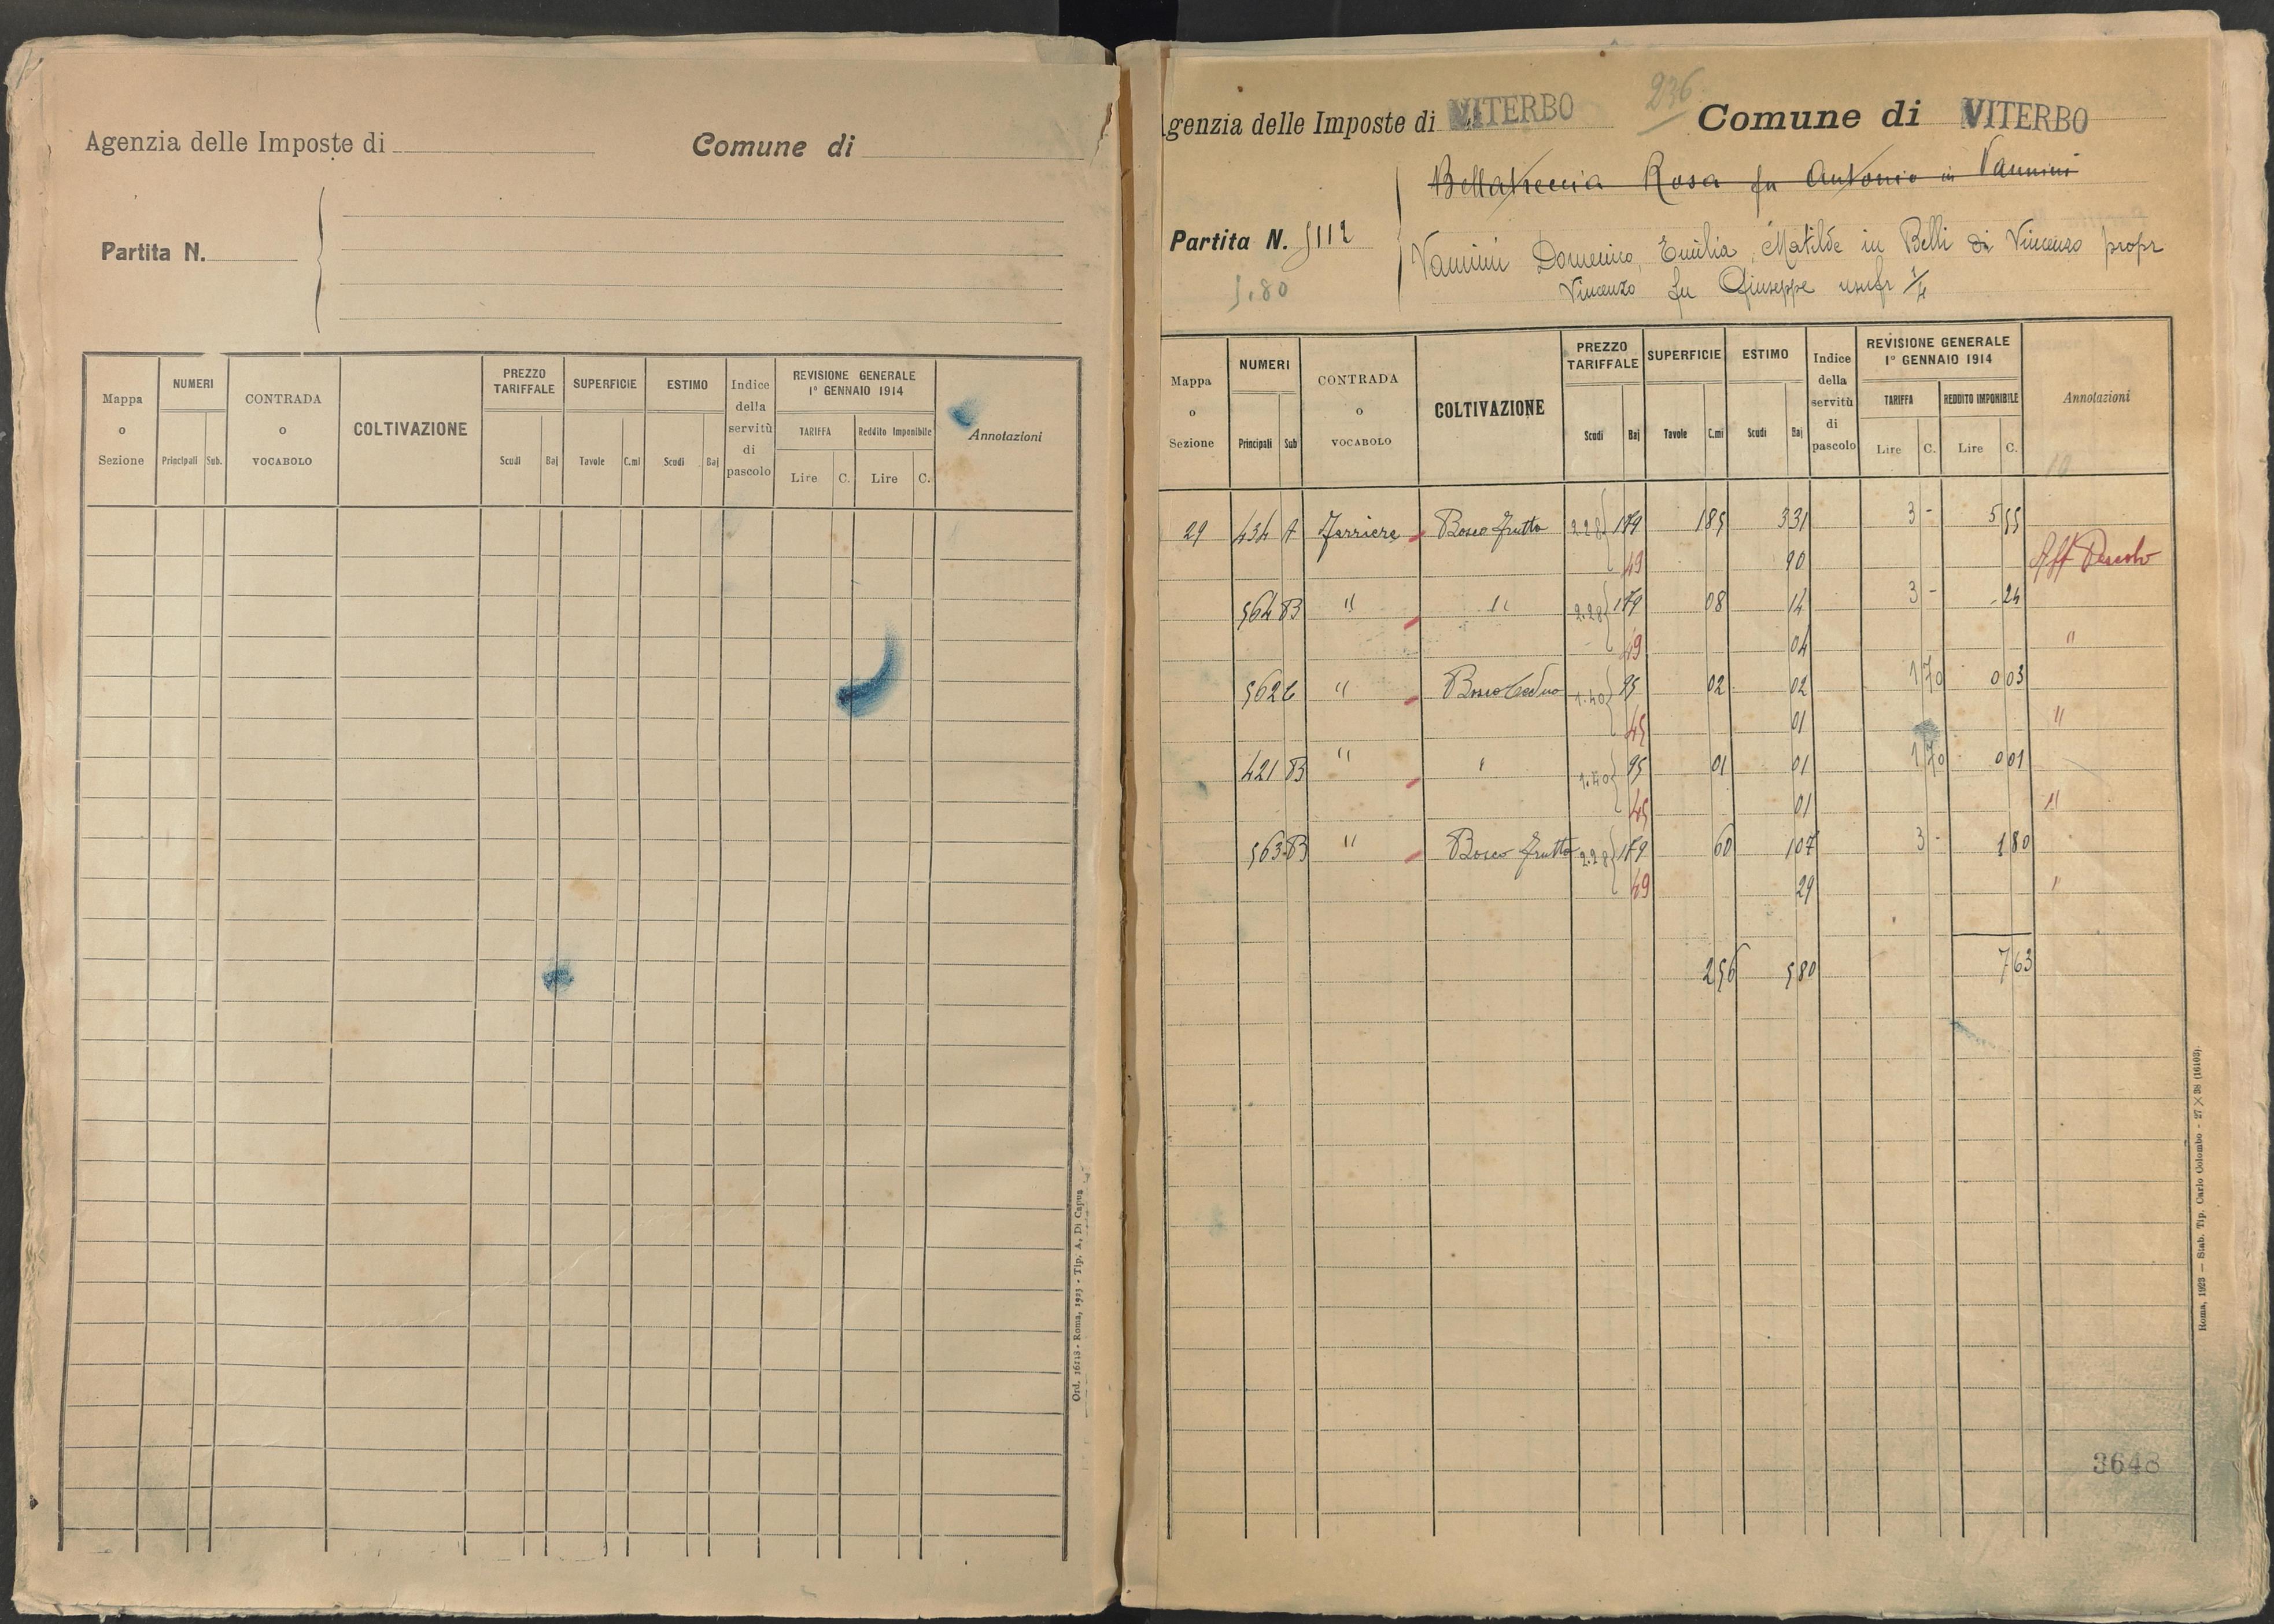 Agenzia delle Imposte di
Comune di
Partita N.
Mappa o Sezione
NUMERI
Principali Sub.
CONTRADA o VOCABOLO
COLTIVAZIONE
PREZZO TARIFFALE
Scudi Baj
SUPERFICIE
Tavole C.mi
ESTIMO
Scudi Baj
Indice della servitù di pascolo
REVISIONE GENERALE 1° GENNAIO 1914
TARIFFA
Lire C.
Reddito Imponibile
Lire C.
Annotazioni
Ord. 16118 - Roma, 1923 - Tip. A. Di Capua
genzia delle Imposte di VITERBO
236
Comune di VITERBO
Bellatreccia Rosa fu Antonio in Vannini
Partita N. 5112
Vannini Domenico, Emilia, Matilde in Belli di Vincenzo propr
Vincenzo fu Giuseppe usufr 1/4
5.80
Mappa o Sezione
NUMERI
Principali Sub
CONTRADA o VOCABOLO
COLTIVAZIONE
PREZZO TARIFFALE
Scudi Baj
SUPERFICIE
Tavole C.mi
ESTIMO
Scudi Baj
Indice della servitù di pascolo
REVISIONE GENERALE 1° GENNAIO 1914
TARIFFA
Lire C.
REDDITO IMPONIBILE
Lire C.
Annotazioni
10
29 434 A Ferriere Bosco frutto 2.28 179 185 331 3 - 5 55
49 90 Aff Pascolo
564 B " " 2.28 179 08 14 3 - - 24
49 04 "
562 C " Bosco Ceduo 1.40 95 02 02 1 70 0 03
45 01 "
421 B " " 1.40 95 01 01 1 70 0 01
45 01 "
563 B " Bosco frutto 2.28 179 60 107 3 - 1 80
49 29 "
2 56 5 80 7 63
Roma, 1923 — Stab. Tip. Carlo Colombo - 27 X 38 (16103).
3648